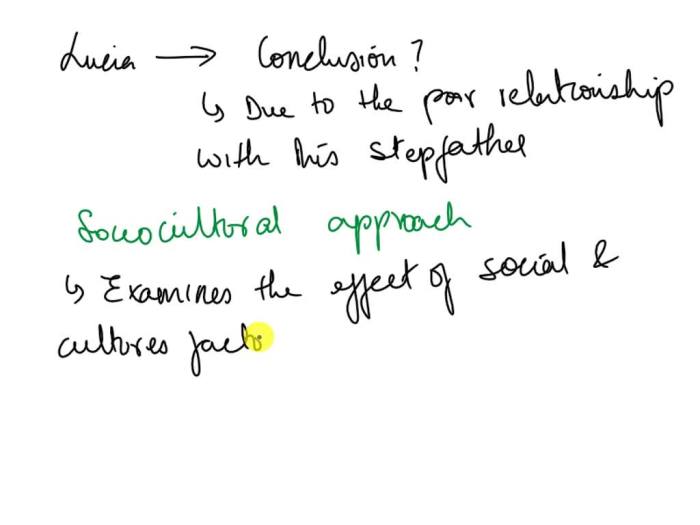 Lucia → Conclusión?
↳ Due to the poor relationship
with his stepfather
Sociocultural approach
↳ Examines the effect of social &
cultures facto